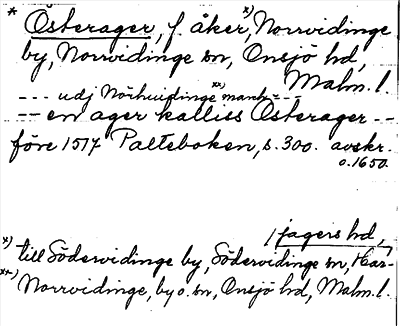 * Österager, f. åker x), Norrvidinge
by, Norrvidinge sn, Onsjö hd,
Malm. l.
--- udj Nörhuidinge xx) marck ---
-- en ager kalliss Österager --
före 1517 Palteboken, s. 300. avskr.
o. 1650.
/jagers hd,
x) till Södervidinge by, Södervidinge sn, Har-
xx) Norrvidinge, by o. sn, Onsjö hd, Malm. l.